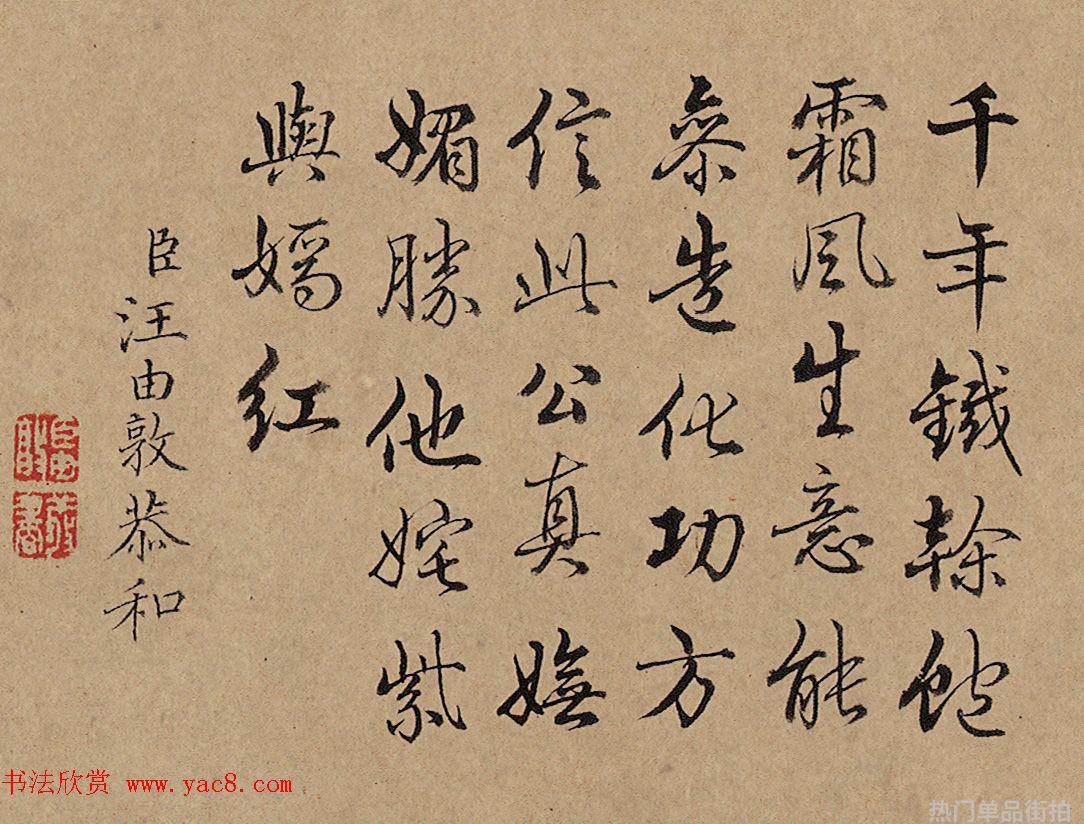 千年鐵榦飽
霜風生意能
叅造化功方
信此公真嫵
媚勝他姹紫
與嫣紅
臣汪由敦恭和
书法欣赏 www.yac8.com
热门单品街拍